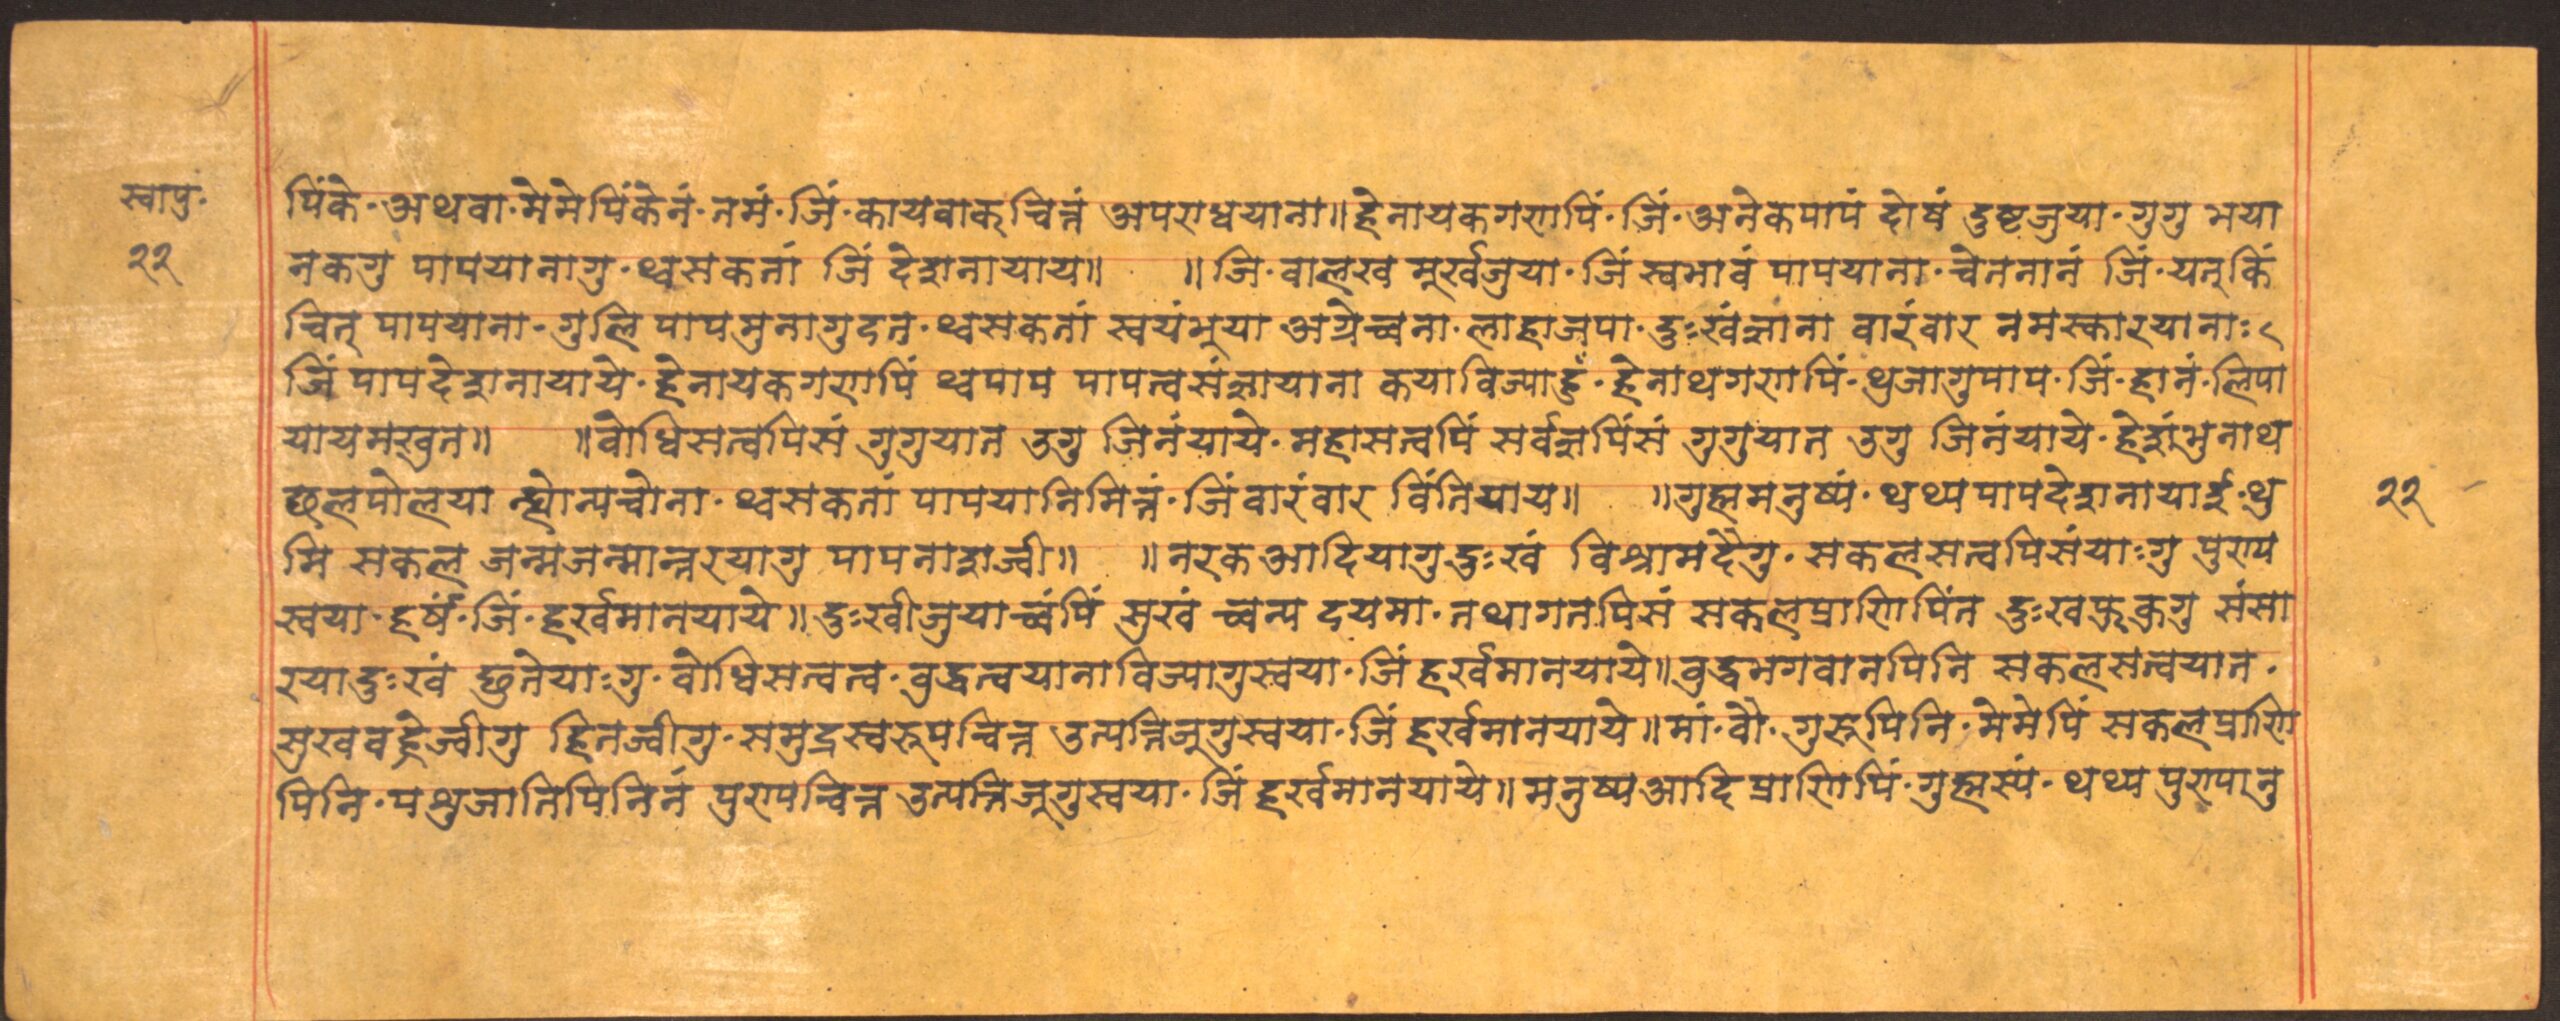 स्वापु·
२२
पिंके·अथवा·मेमेपिंकेनं·नमं·जिं·कायवाक्चित्तं अपराध्वयाना॥हेनायकगणपिं·जिं·अनेकपापं दोषं दुष्टजुया·गुगु भया
नकगु पापयानागु·थ्वसकतां जिं देशनायाय॥ ॥जि·वालख मूर्खजुया·जिं स्वभावं पापयाना·चेतनानं जिं·यत्किं
चित् पापयाना·गुलि पापमुनागुदत·थ्वसकतां स्वयंभूया अग्रेच्वना·लाहाज्वपा·दुःखंज्ञाना वारंवार नमस्कारयानाः
जिं पापदेशनायाये·हेनायकगणपिं थ्वपाप पापत्वसंज्ञायाना कयाविज्याहुं·हेनाथगणपिं·थुजागुपाप·जिं·हानं·लिपा
यायमखुत॥ ॥वोधिसत्वपिसं गुगुयात उगु जिनंयाये·महासत्वपिं सर्वज्ञपिंसं गुगुयात उगु जिनंयाये·हेशंभुनाथ
छलपोलया न्ह्योन्यच्वोना·थ्वसकतां पापयानिमित्तं·जिंवारंवार विंतियाय॥ ॥गुह्ममनुष्यं·थथ्यपापदेशनायाई·थु
मि सकल जन्मजन्मान्तरयागु पापनाशज्वी॥ ॥नरकआदियागुदुःखं विश्रामदैगु·सकलसत्वपिसंयाःगु पुण्य
स्वया·हर्षं·जिं·हर्खमानयाये॥दुःखीजुयाच्वंपिं सुखं च्वन्य दयमा·तथागतपिसं सकलप्राणिपिंत दुःखफुक्गु संसा
रयादुःखं छुतेयाःगु·वोधिसत्वत्व·वुद्धत्वयानाविज्यागुस्वया·जिं हर्खमानयाये॥वुद्धभगवानपिनि सकलसत्वयात·
सुखवह्रेज्वीगु हितज्वीगु·समुद्रस्वरूपचित्त उत्पत्तिजूगुस्वया·जिं हर्खमानयाये॥मां·वौ·गुरूपिनि·मेमेपिं सकलप्राणि
पिनि·पशुजातिपिनिनं पुण्यचित्त उत्पत्तिजूगुस्वया·जिं हर्खमानयाये॥मनुष्यआदि प्राणिपिं·गुह्मस्यं·थथ्य पुण्यानु
२२